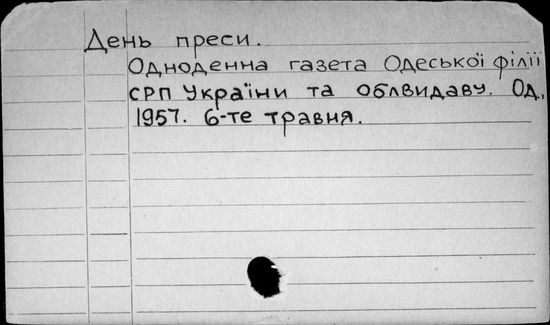 День преси.
Одноденна газета Одеської філії
СРП України та облвидаву. Од.,
1957. 6-те травня.